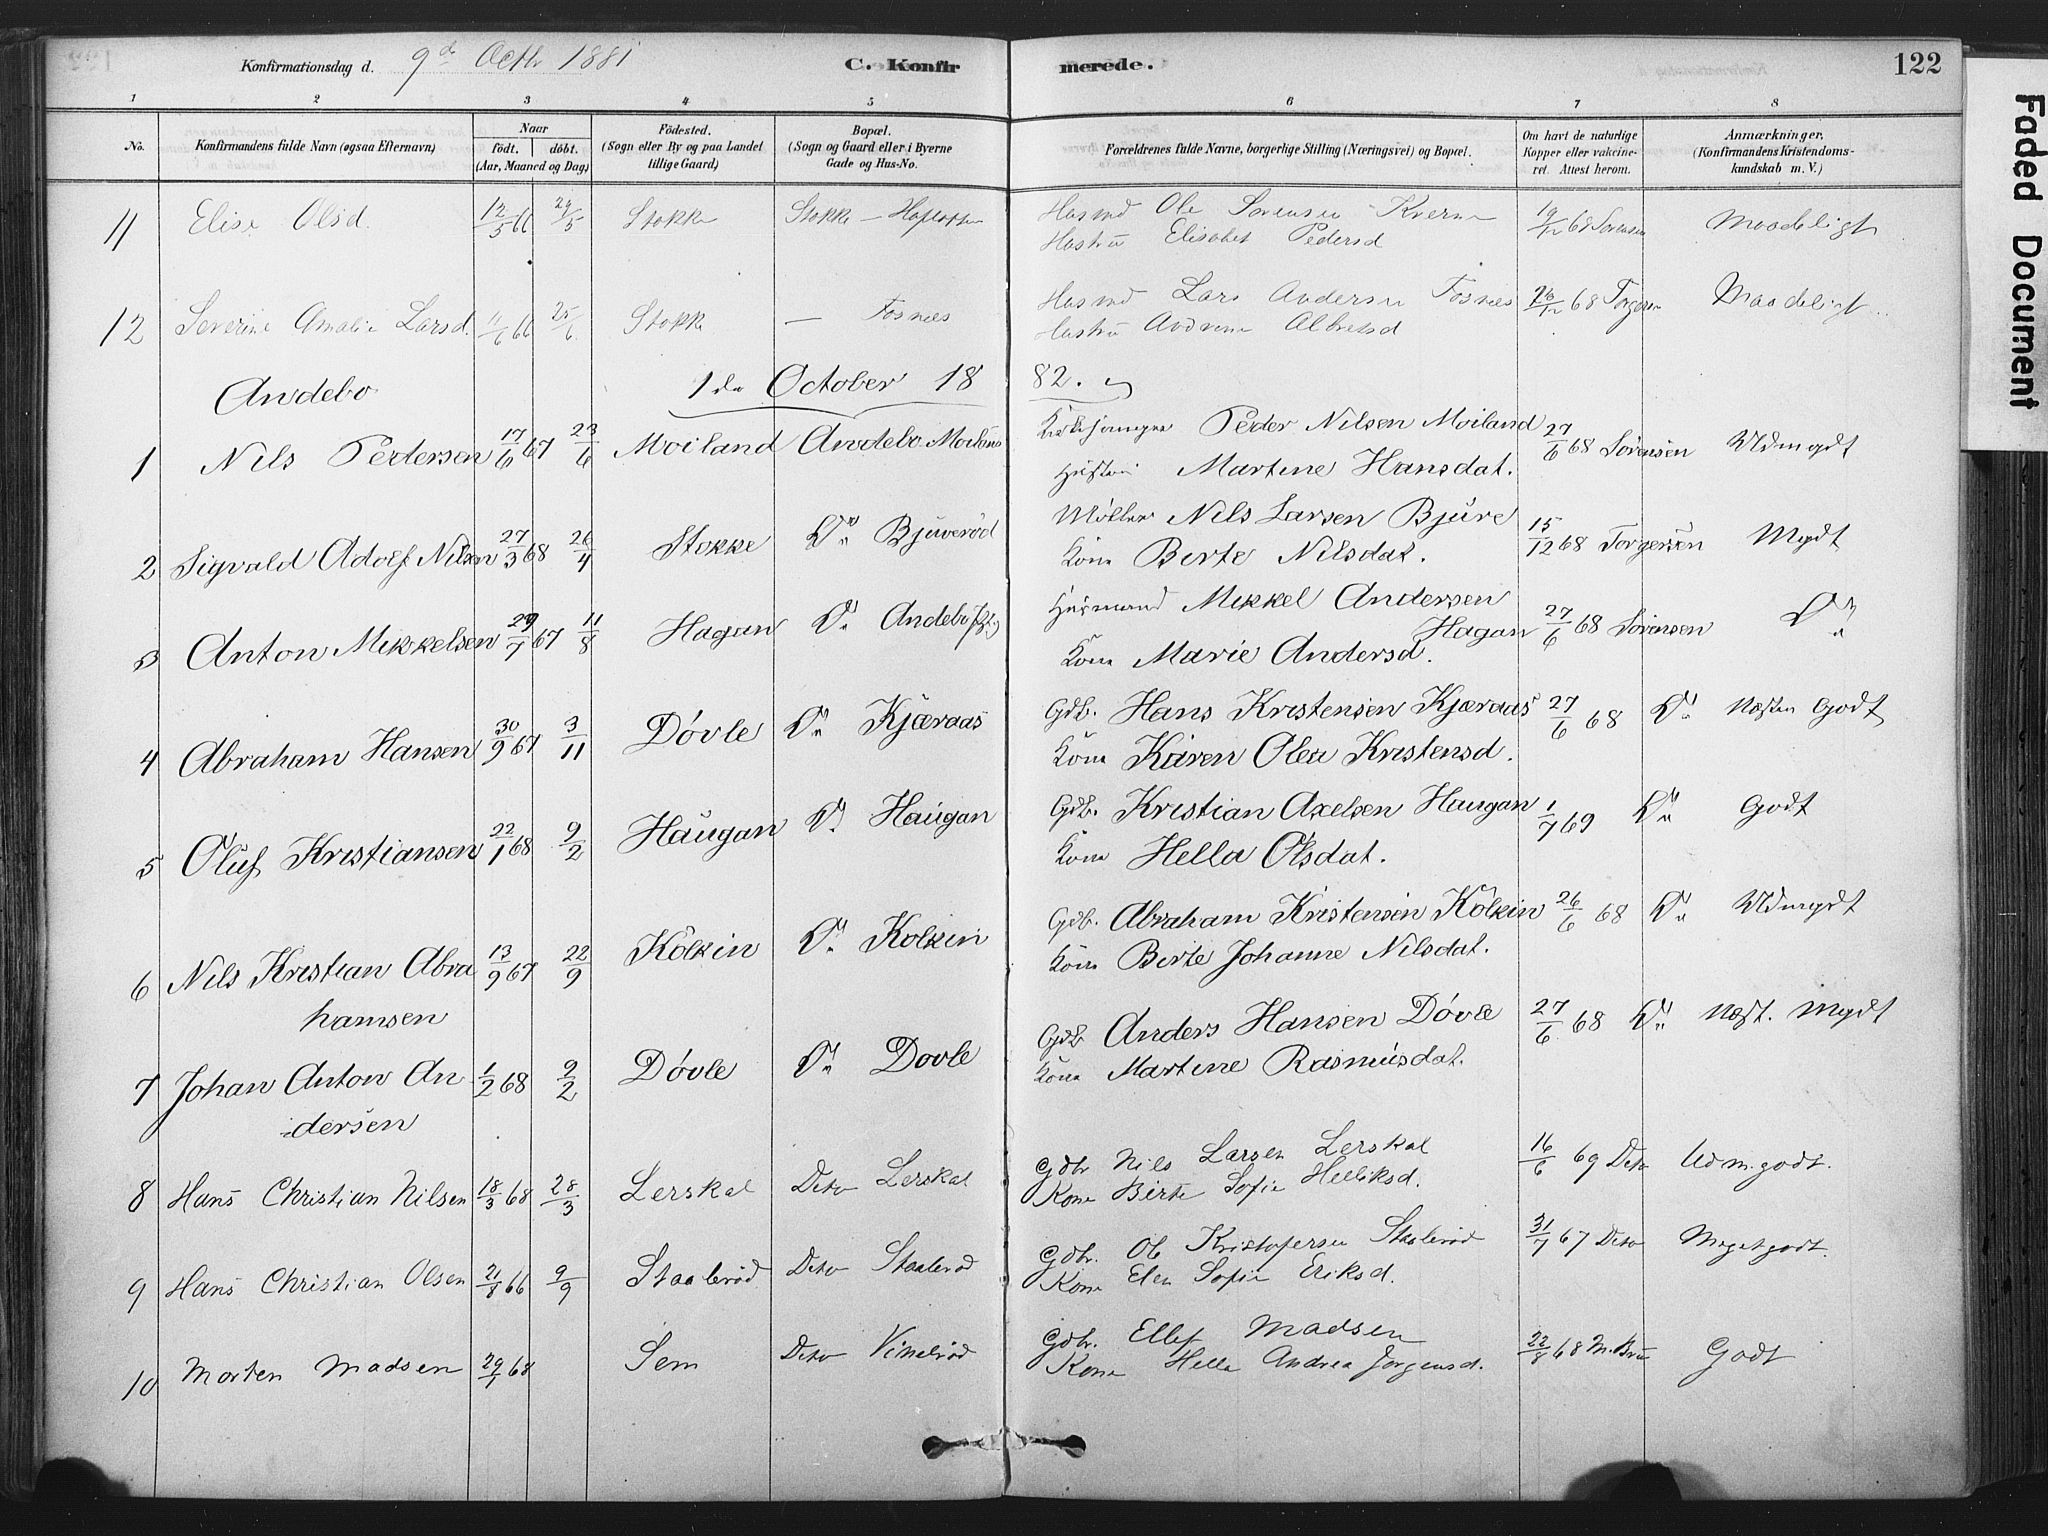 Konfirmationsdag d. 9de Octb 1881 C. Konfirmerede. 122
1 2 3 4 5 6 7 8
No. Konfirmandens fulde Navn (ogsaa Efternavn) Naar födt. döbt. (Aar, Maaned og Dag) Födested. (Sogn eller By og paa Landet tillige Gaard) Bopæl. (Sogn og Gaard eller i Byerne Gade og Hus-No. Forældrenes fulde Navne, borgerlige Stilling (Næringsvei) og Bopæl. Om havt de naturlige Kopper eller vakcineret. Attest herom. Anmærkninger. (Konfirmandens Kristendomskundskab m. V.)
11 Elise Olsd. 12/5 66 29/5 Stokke Stokke – Husmd Ole Sorensen Kverne 19/12 68 Sorensen Maadeligt
Hustru Elisabet Pedersd
12 Severine Amalie Larsd. 11/6 66 25/6 Stokke — Fosnæs Husmd Lars Andersen Fosnæs 26/12 68 Torgersen Maadeligt
Hustru Andrine Albretsd
Andebo 1ste October 1882.
1 Nils Pedersen 17/6 67 23/6 Moiland Andebo Moiland Peder Nilsen Moiland 27/6 68 Sörensen Udmgdt
Martine Hansdat.
2 Sigvald Adolf Nilsen 27/3 68 26/4 Stokke Do Bjuerød Møller Nils Larsen Bjüre 15/12 68 Torgersen Mgdt
Kone Berte Nilsdat.
3 Anton Mikkelsen 29/7 67 11/8 Hagan Do Andebo Husmand Mikkel Andersen
Hagan 27/6 68 Sörensen Do
Kone Marie Andersd.
4 Abraham Hansen 30/9 67 3/11 Døvle Do Kjæraas Gdb. Hans Kristensen Kjæraas 27/6 68 Do Næsten Godt
Kone Karen Olea Kristensd.
5 Oluf Kristiansen 22/1 68 9/2 Haugan Do Haugan Gdb. Kristian Axelsen Haugan 1/7 69 Do Godt
Kone Hella Olsdat.
6 Nils Kristian Abra 13/9 67 22/9 Kolkin Do Kolkin Gdb. Abraham Kristensen Kolkin 26/6 68 Do Udmgdt
hamsen Kone Berte Johanne Nilsdat.
7 Johan Anton An 1/2 68 9/2 Døvle Do Dovle Gdb Anders Hansen Døvle 27/6 68 Do Næst. Mgdt
dersen Kone Martine Rasmusdat.
8 Hans Christian Nilsen 18/3 68 28/3 Lerskal Deto Lerskal Gdbr Nils Larsen Lerskal 16/6 69 Deto Udm.godt.
Kone Birte Sofie Helliksd.
9 Hans Christian Olsen 21/8 66 9/9 Staalerød Deto Staalerød Gdbr. Ole Kristofersen Staalerød 31/7 67 Deto Megetgodt.
Kone Elen Sofie Eriksd.
10 Morten Madsen 29/1 68 Sem Deto Gdbr. Ellef Madsen 22/8 68 M. Bru Godt
Kone Helle Andrea Jorgensd.
Faded Document